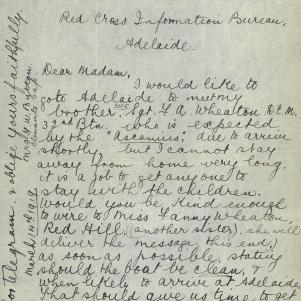 Red Cross Information Bureau,
Adelaide.
Dear Madam,
I would like to
goto Adelaide to meet my
brother 2006 Sgt. F. A. Wheaton D.C.M.
32nd Btn. who is expected
by the "Ascanius" due to arrive
shortly but I cannot stay
away from home very long.
it is a job to get anyone to
stay with the children.
Would you be kind enough
to wire to Miss Fanny Wheaton,
Red Hill, (another sister), she will
deliver the message this end,
as soon as possible, stating
should the boat be clean, &
when likely to arrive at Adelaide
That should give us time to get
or telegram, & oblige yours faithfully,
March 14th 1919